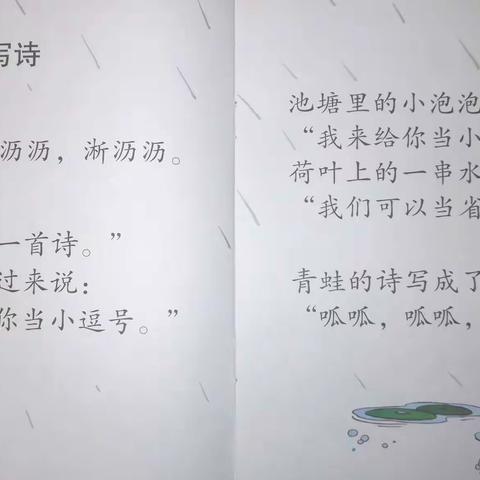 写诗
沥沥，淅沥沥。
一首诗。”
过来说：
你当小逗号。”
池塘里的小泡泡
“我来给你当小
荷叶上的一串水
“我们可以当省
青蛙的诗写成了
“呱呱，呱呱，